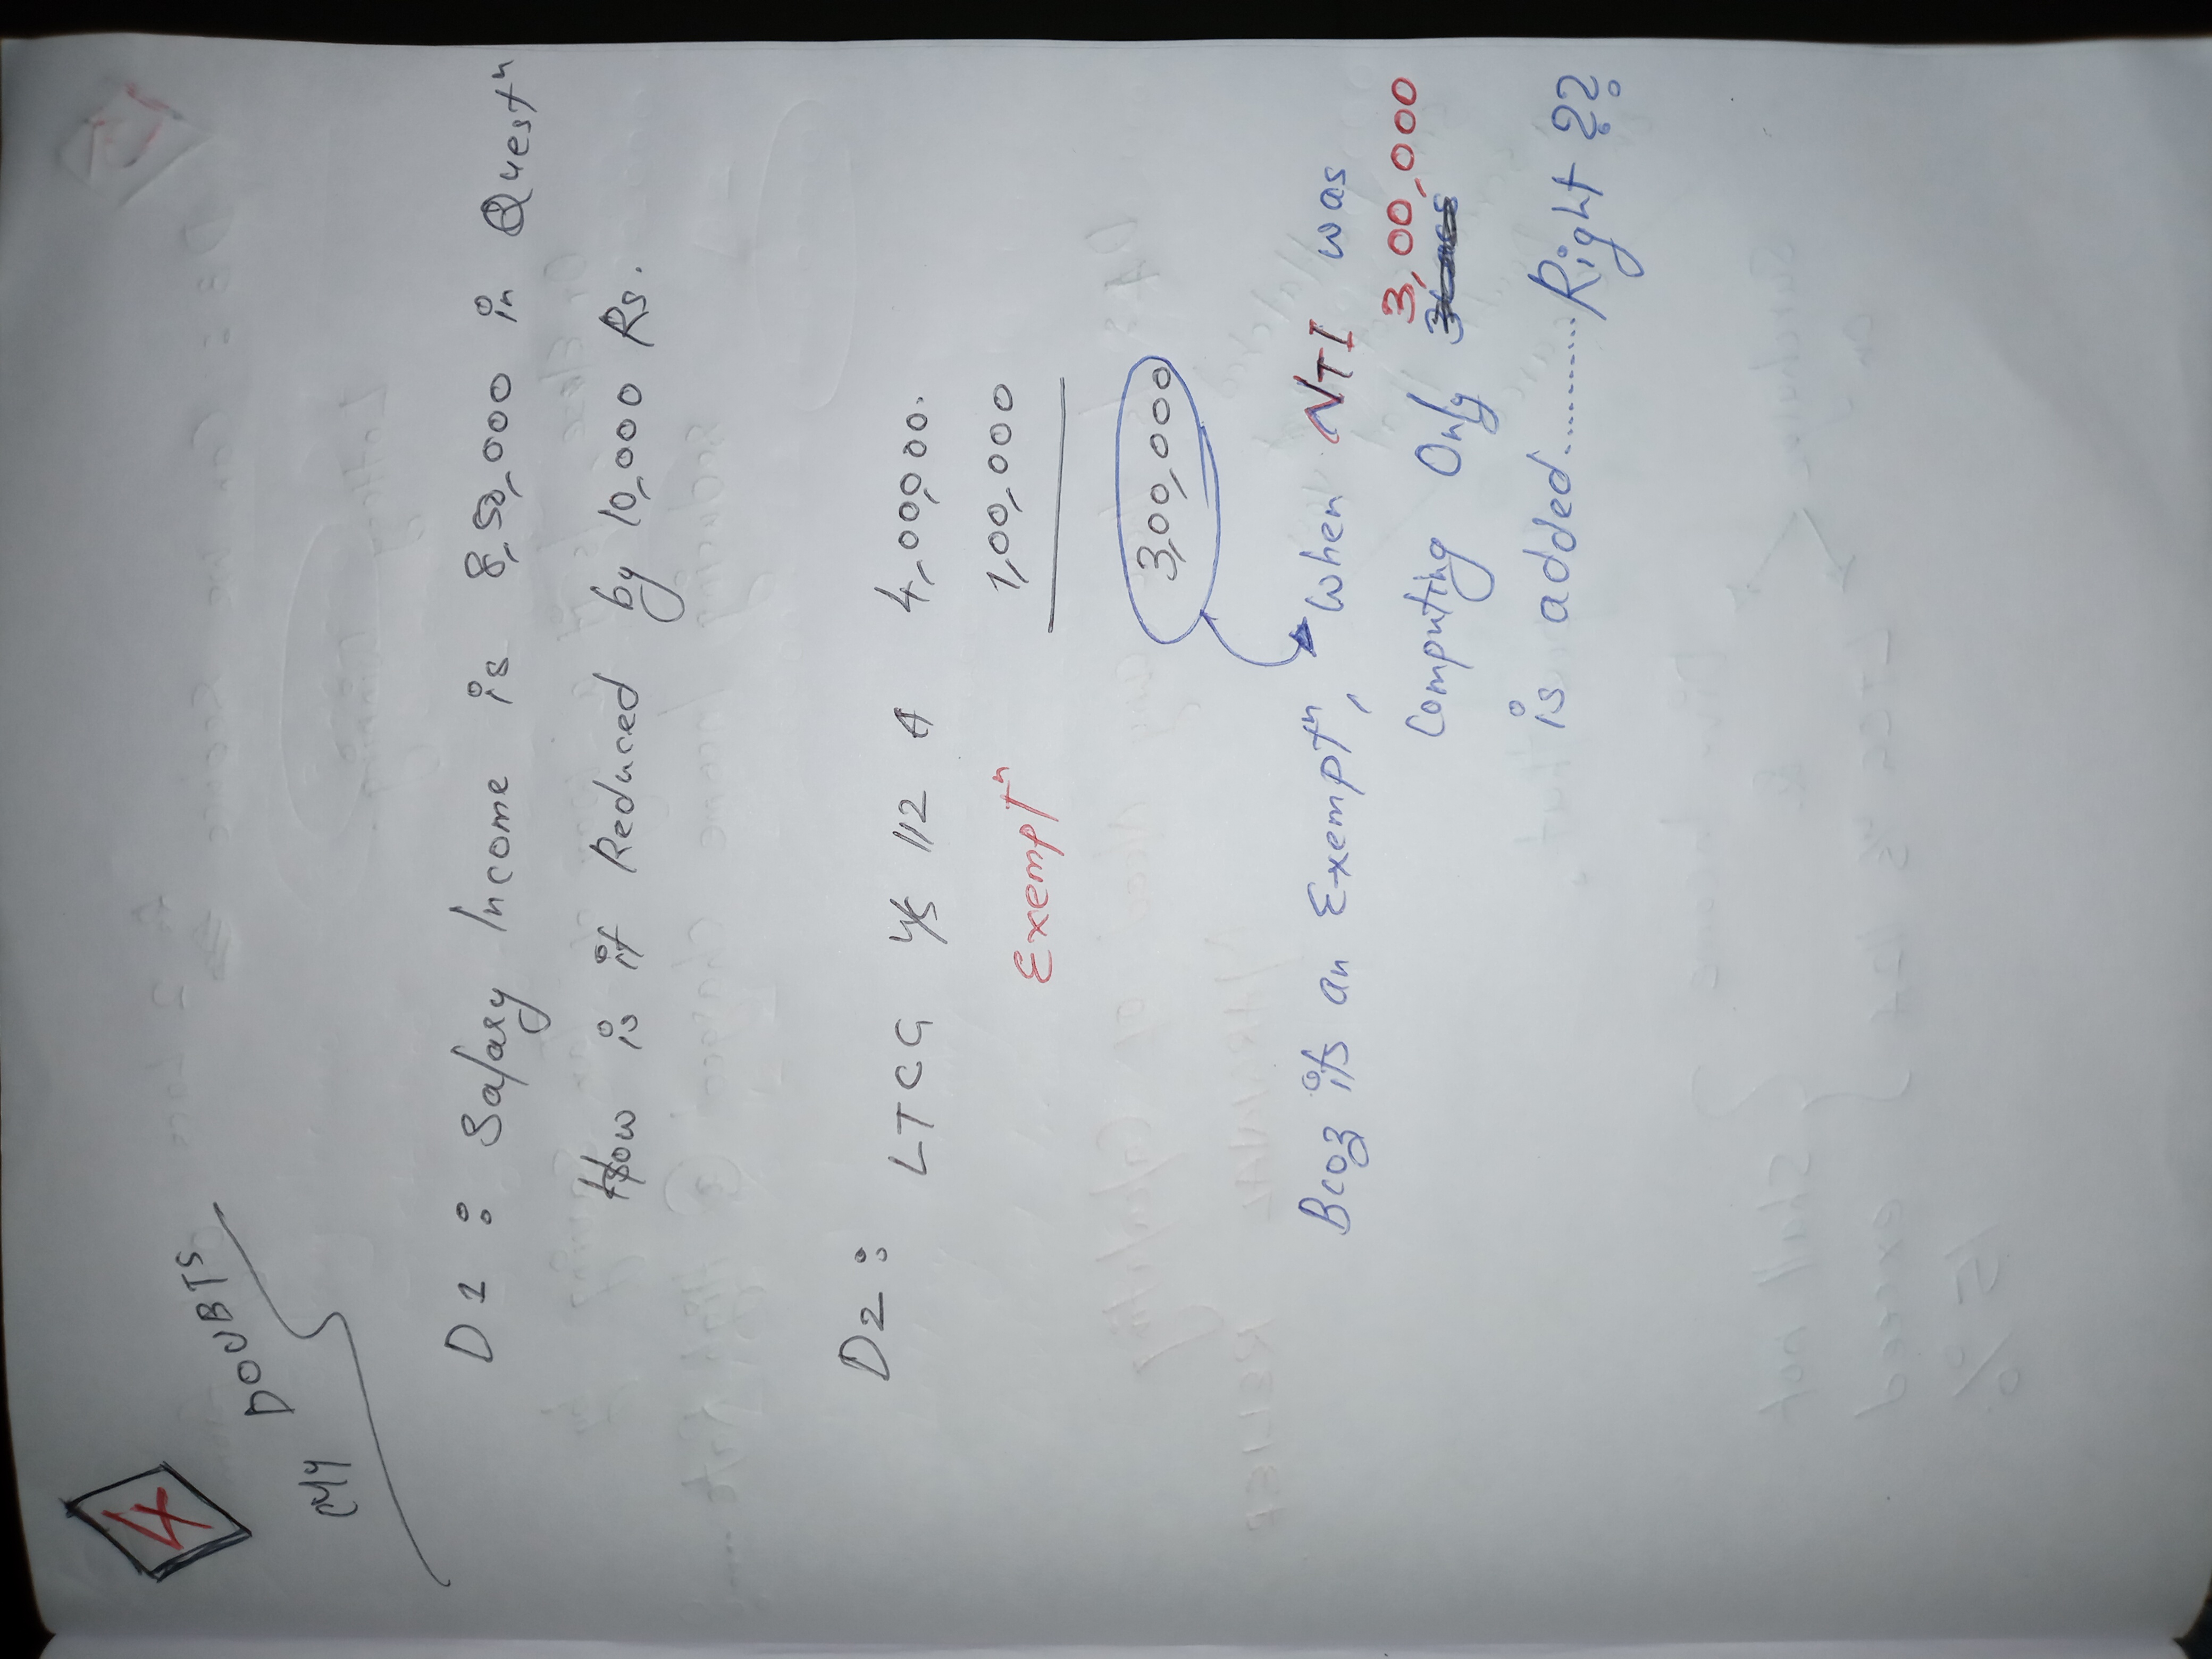 4
My DOUBTS
D1 : Salary Income is 8,50,000 in Questn
How is it Reduced by 10,000 Rs.
D2 : LTCG u/s 112 A 4,00,000.
Exemptn 1,00,000
3,00,000
Bcoz its an Exemptn, when NTI was
Computing Only 3,00,000
is added..........Right ??